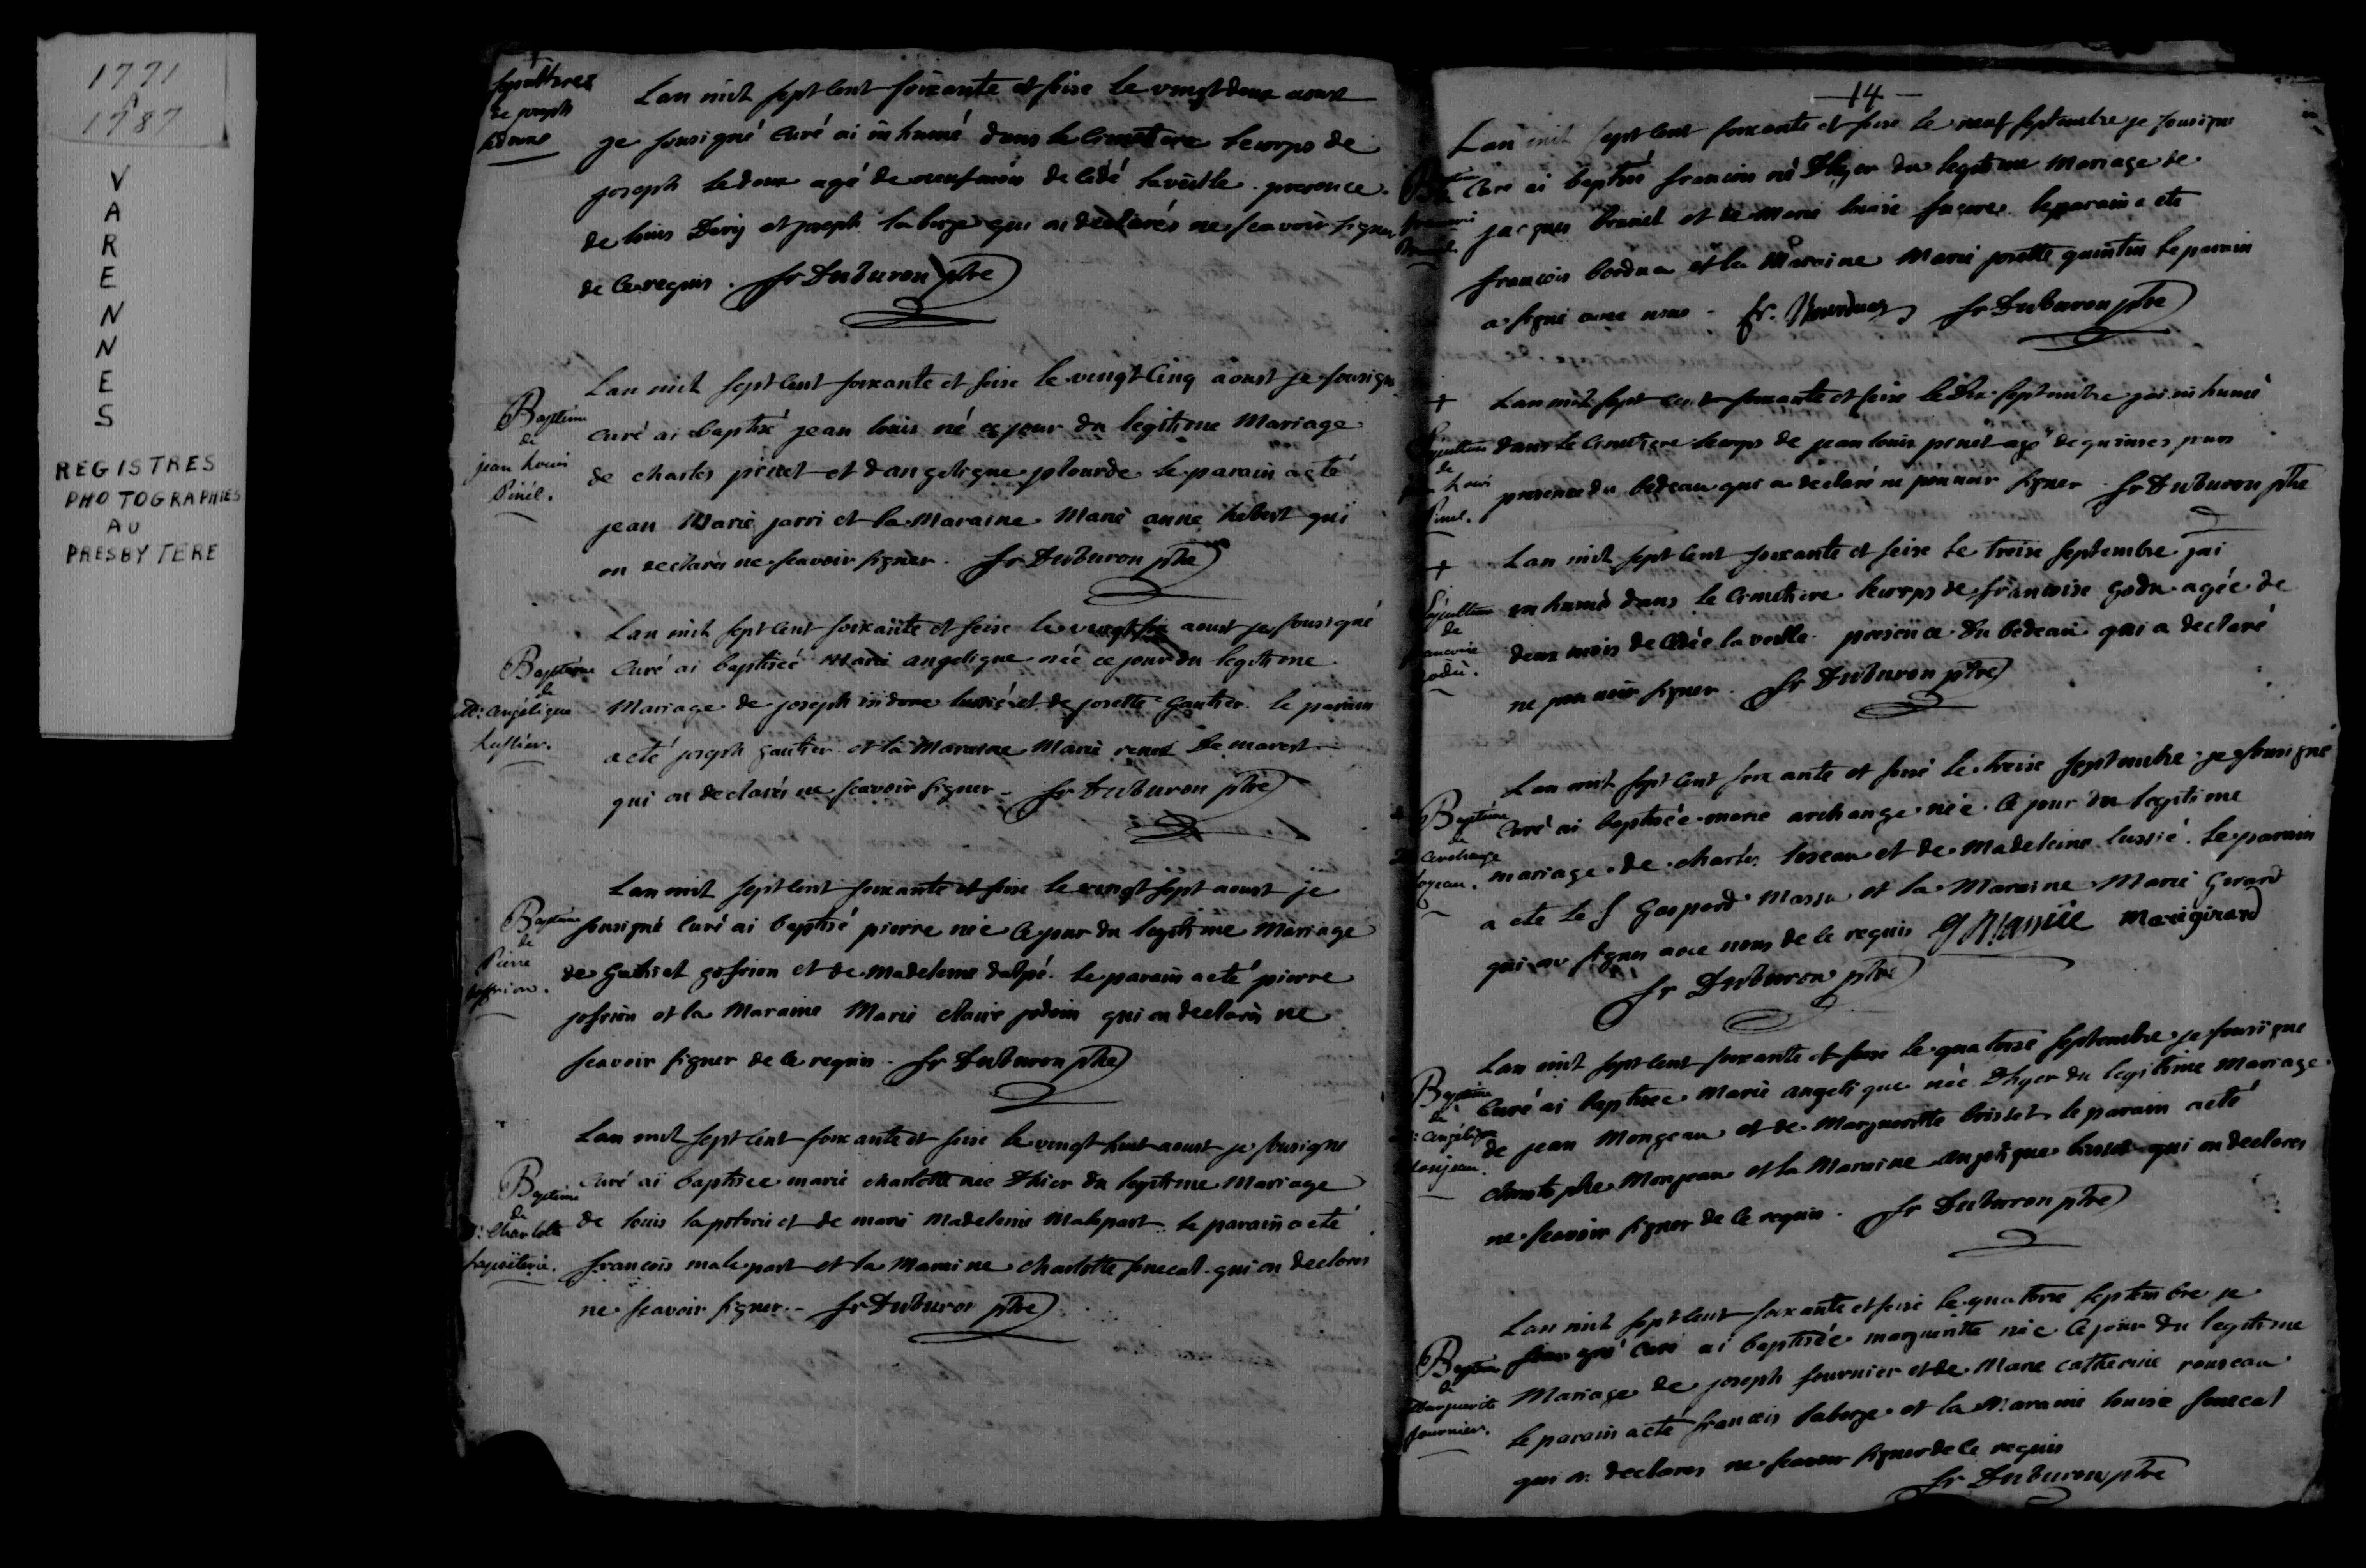 1771
à
1787
VARENNES
REGISTRES
PHOTOGRAPHIES
AU
PRESBYTERE
Sepultures
de joseph
Lan mil sept cent soixante et seise le vingt deux aoust
je sousigné curé ai inhumé dans le cimetiere le corps de
joseph ledoux agé de neuf mois decedé la veille. presence
de louis Davy et joseph laberge qui on declarés ne scavoir signer
de ce requis. fr Duburon ptre
Baptême
de
jean Louis
Pinél.
Lan mil sept cent soixante et seise le vingt cinq aoust je sousigné
curé ai baptisé jean louis né ce jour du legitime Mariage
de charles pinel et dangelique plourde le parain a eté
jean Marie jarri et la Maraine Marie anne hebert qui
on declarés ne scavoir signer. fr Duburon ptre
Baptême
de
M: angélique
Lussier.
Lan mil sept cent soixante et seise le vingt six aoust je sousigné
curé ai baptiseé Marie angelique neé ce jour du legitime
Mariage de joseph isidore lussié et de josette Gautier le parain
a eté joseph gautier et la Maraine Marie Demarest
qui on declarés ne scavoir signer. fr Duburon ptre
Baptême
de
Pierre
Lan mil sept cent soixante et seise le vingt sept aoust je
sousigné curé ai baptisé pierre né ce jour du legitime Mariage
de Gabriel josrion et de Madeleine dalpé. le parain a eté pierre
josrion et la Maraine Marie claire jodoin qui on declarés ne
scavoir signer de ce requis. fr Duburon ptre
Baptême
de
M: Charlotte
Lapoiterie.
Lan mil sept cent soixante et seise le vingt huit aoust je sousigné
curé ai baptisee marie charlotte neé Dhier du legitime Mariage
de louis lapoterie et de marie Madeleine Malepart. le parain a eté
francois malepart et la Maraine charlotte senecal qui on declarés
ne scavoir signer. fr Duburon ptre
14
Lan mil sept cent soixante et seise le neuf septembre je sousigné
curé ai baptisé francois né Dhyer du legitime Mariage de
jacques Brunel et de Marie louise le parain a eté
francois bordua et la Maraine Marie josette quintin le parain
a signé avec nous. fr. Bourdua fr Duburon ptre
+
Sepulture
de
jean Louis
Pinel.
Lan mil sept cent soixante et seise le Dix septembre jai inhumé
dans le cimetiere le corps de jean louis pinel agé de quinse jours
presence du bedeau qui a declaré ne pouvoir signer. fr Duburon ptre
+
Sepulture
de
francoise
Godu.
Lan mil sept cent soixante et seise le treise septembre jai
inhumé dans le cimetiere le corps de francoise godu agée de
deux mois decedée la veille. presence du bedeau qui a declaré
ne pouvoir signer. fr Duburon ptre
Baptême
de
archange
Loyeau.
Lan mil sept cent soixante et seise le treise septembre je sousigné
curé ai baptisée marie archange née ce jour du legitime
mariage de charles loseau et de Madeleine lussié. le parain
a eté le S Gaspard Massu et la Maraine Marie Girard
qui on signes avec nous de ce requis G Massüe Marie girard
fr Duburon ptre
Baptême
de
M: angélique
Monjeau.
Lan mil sept cent soixante et seise le quatorse septembre je sousigné
curé ai baptisee Marie angelique née Dhyer du legitime Mariage
de jean Mongeau et de Marguerite brisset le parain a eté
christophe Monjeau et la Maraine angelique brisset qui on declares
ne scavoir signer de ce requis. fr Duburon ptre
Baptême
de
Marguerite
fournier.
Lan mil sept cent soixante et seise le quatorse septembre je
sousigné curé ai baptisée marguerite née ce jour du legitime
Mariage de joseph fournier et de Marie catherine rouseau
le parain a eté francois laberge et la Maraine louise senecal
qui on declares ne scavoir signer de ce requis
fr Duburon ptre